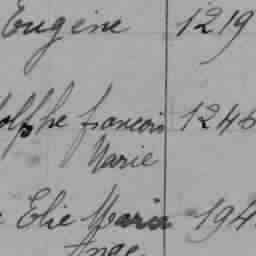 Eugène 1219
dolphe françois 124
Marie
Elie Marie 194
Ange